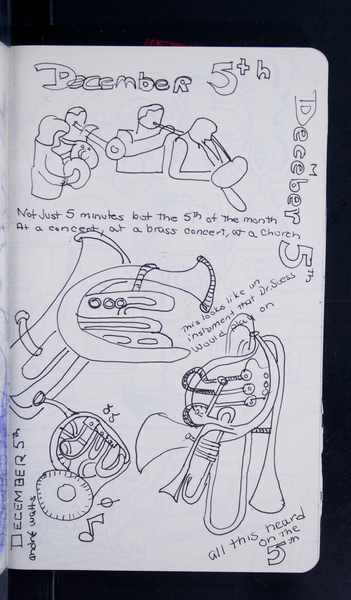 December 5th
December 5th
Not Just 5 minutes but the 5th of the month
At a concert, at a brass concert, at a church
This looks like an
instument that Dr. Suess
would play on
DECEMBER 5th
andré watts
all this heard
on the
5th